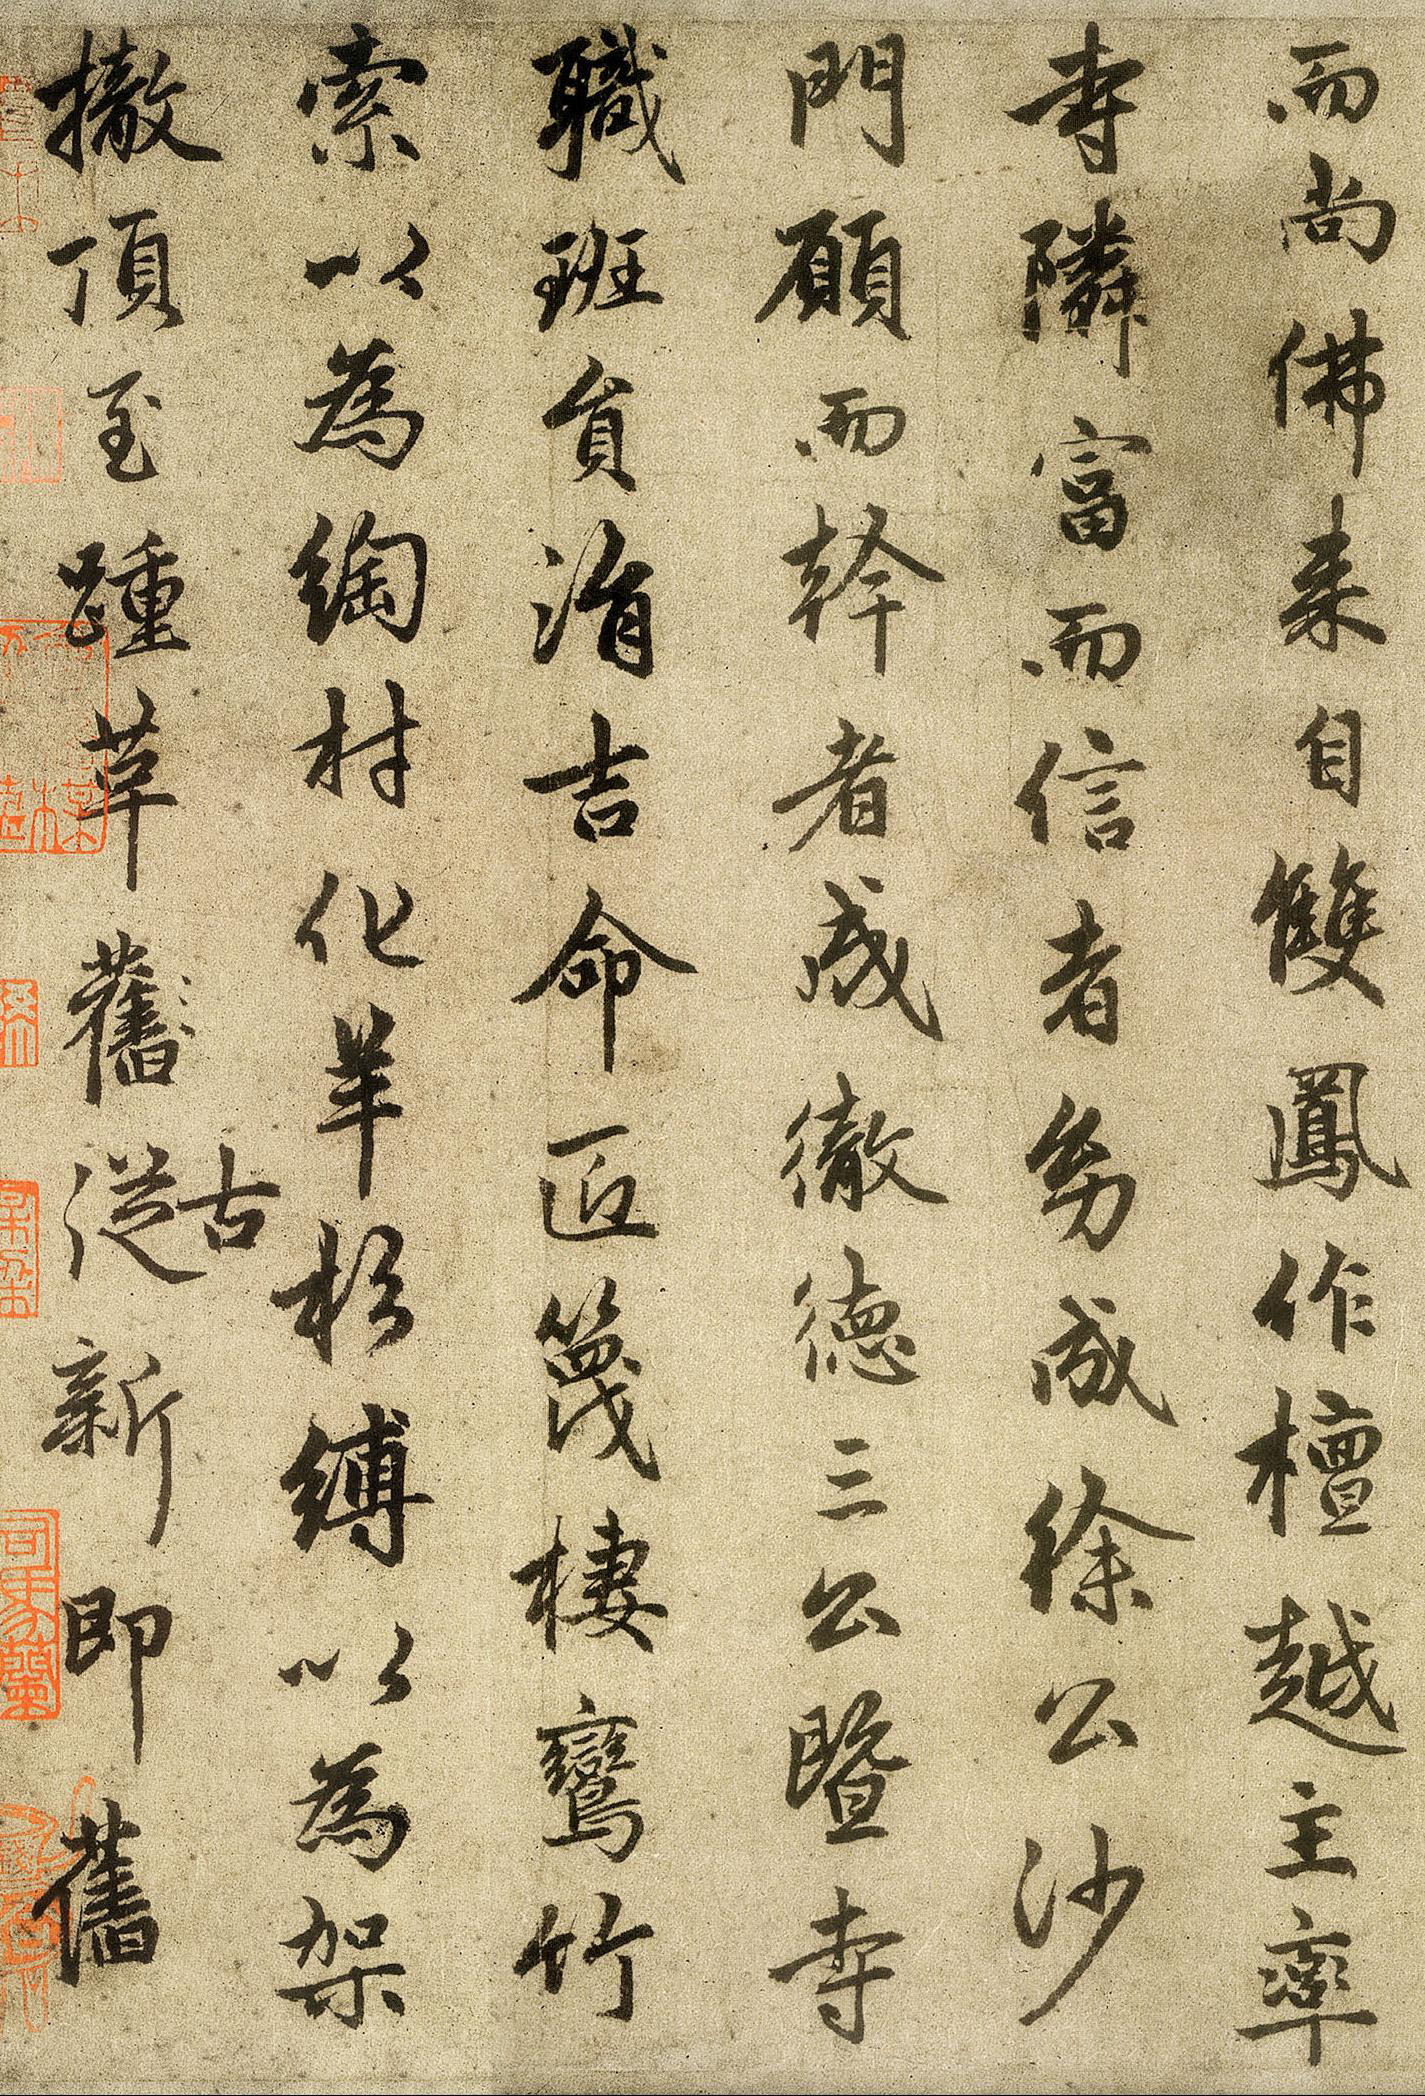 而尚佛来自雙鳳作檀越主率
寺隣富而信者幼成徐公沙
門願而幹者成徹德三公暨寺
職班貟涓吉命匠篾棲鸞竹
索以為綯材化羊杉縛以為架
撤頂至踵革舊古從新即舊